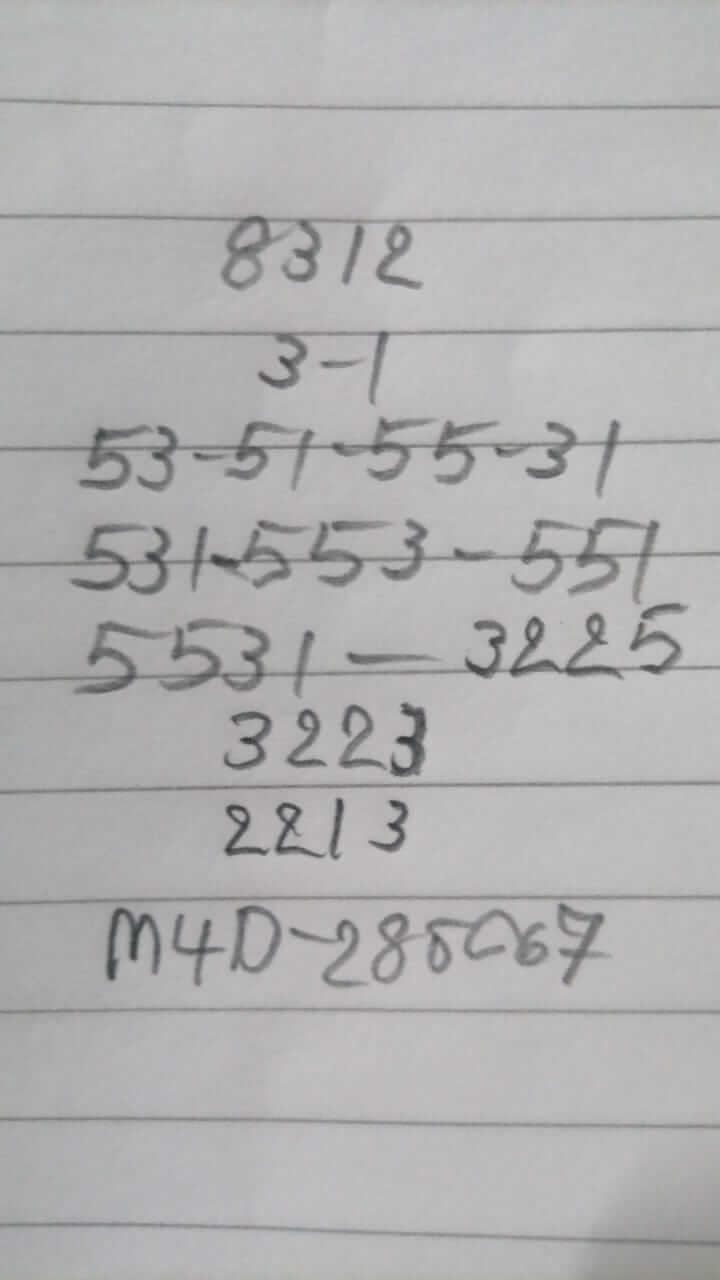 8312
3-1
53-51-55-31
531-553-551
5531-3225
3223
2213
M4D-285067